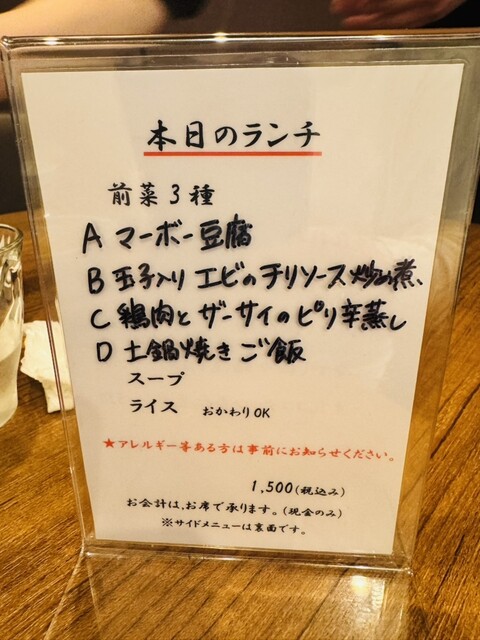 本日のランチ
前菜3種
A マーボー豆腐
B 玉子入り エビのチリソース炒め煮、
C 鶏肉と ザーサイのピリ辛蒸し
D 土鍋焼きご飯
スープ
ライス おかわりOK
★アレルギー等ある方は事前にお知らせください。
1,500(税込み)
お会計は、お席で承ります。(現金のみ)
※サイドメニューは裏面です。